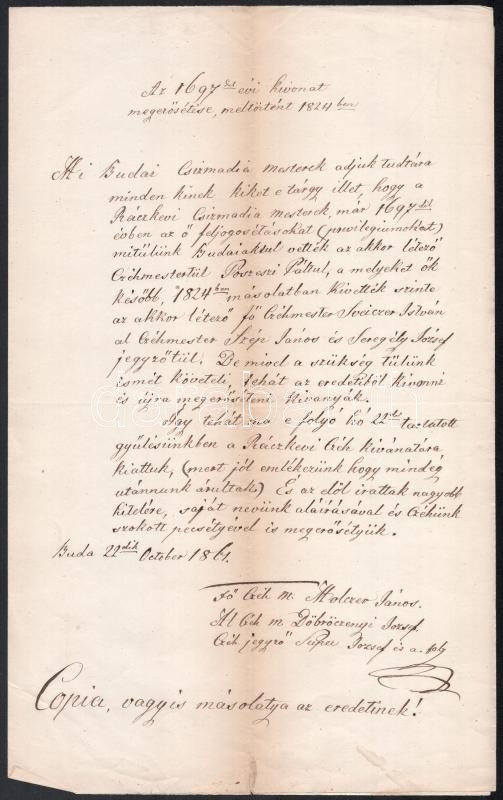 Az 1697dik évi kivonat
megerősétése, meltörtént 1824ben
Mi Budai Csizmadia mesterek adjuk tudtára
minden kinek kiket e tárgy illet, hogy a
Ráczkevi Csizmadia mesterek, már 1697dik
évben az ő feljogosétásokat (privilegiumokat)
mitülünk Budaiaktul vették az akkor létező
Czéhmestertül Poszeszi Páltul, a melyeket ők
később, 1824ben másolatban kivették szinte
az akkor létező fő Czéhmester Sveiczer István
al Czéhmester Szépi János és Seregély József
jegyzőtül. De mivel a szükség tülünk
ismét követeli, tehát az eredetiből kivonni
és újra megerősételni kivanyák.
Igy tehát ma e folyó hó 22én tartatott
gyülésünkben a Ráczkevi Czéh kivánatára
kiattuk, (mert jól emlékezünk hogy mindég
utánnunk árúltak) És az elöl irattak nagyobb
hitelére, saját nevünk aláirásával és Czéhünk
szokott pecsétyevel is megerősétyük.
Buda 22dik October 1861.
Fő Czéh m. Holczer János.
Al Czéh m. Döbröczenyi Jozsef.
Czéh jegyző Jozsef és a.
Copia, vagyis másolatya az eredetinek!